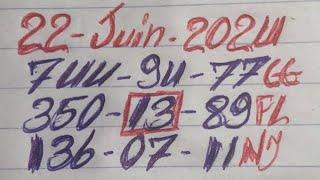 22-Juin-2024
744-94-77GG
350-13-89FL
136-07-11NJ